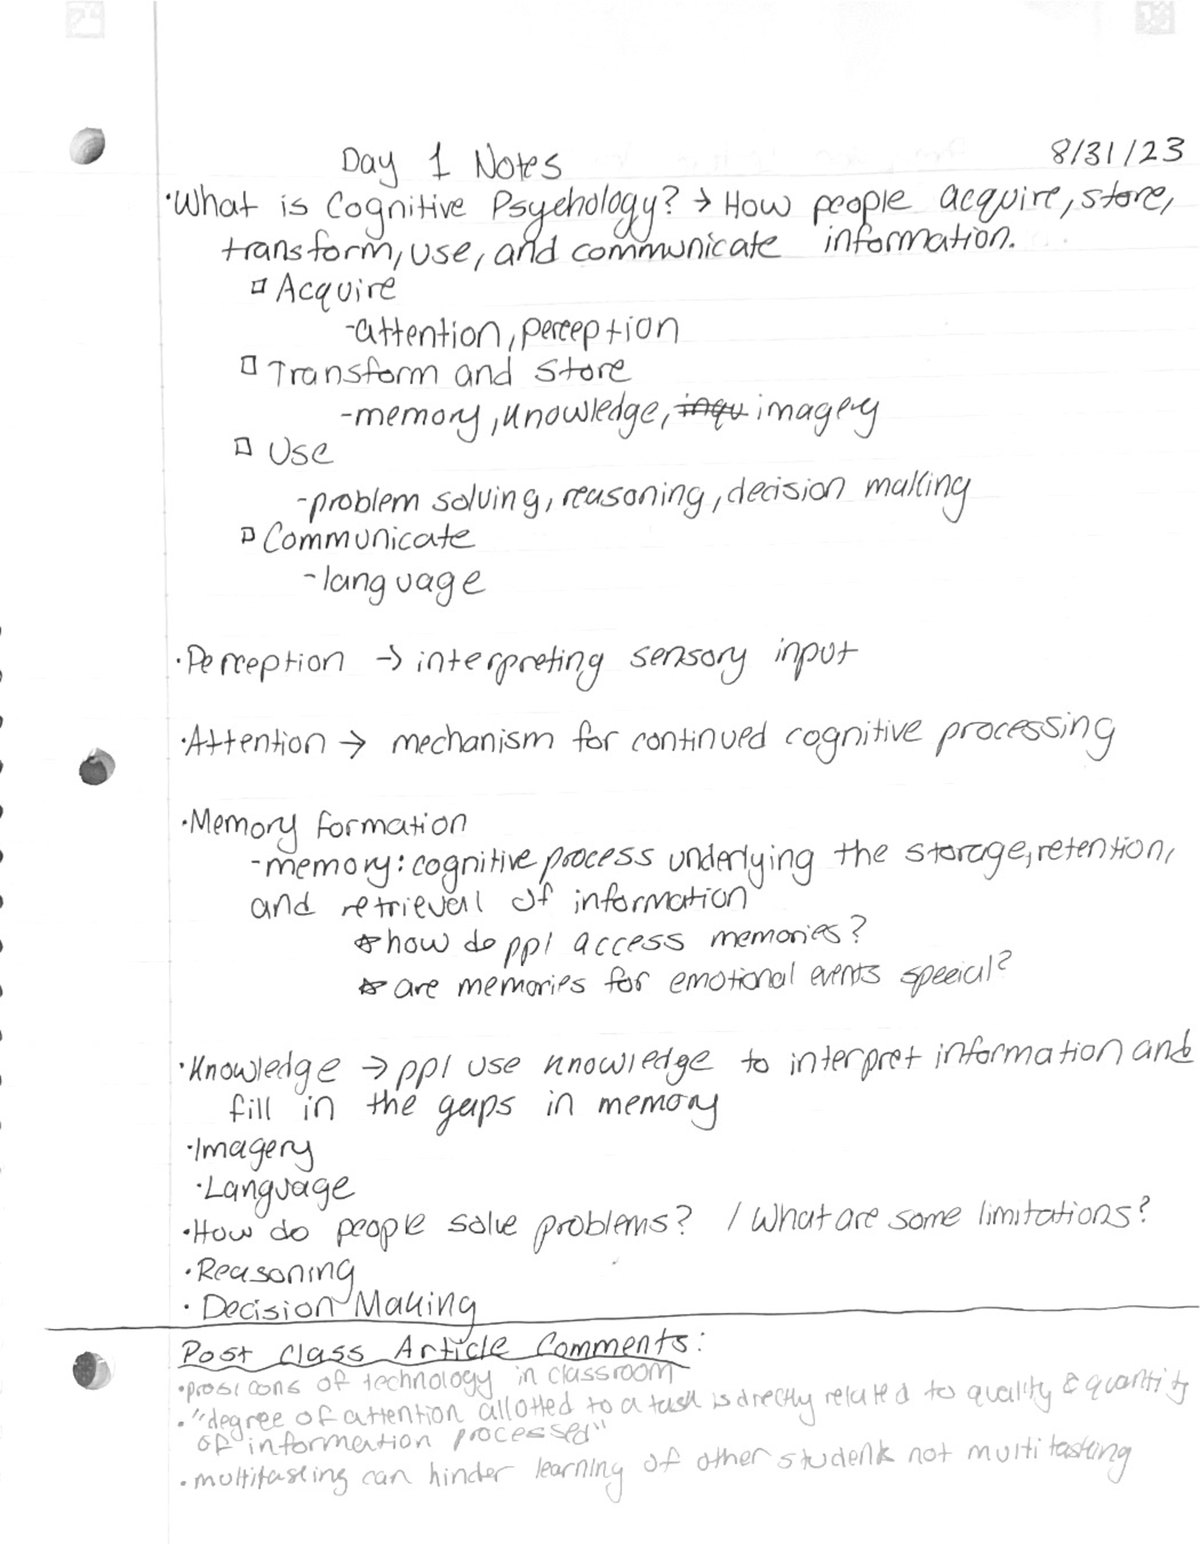 Day 1 Notes 8/31/23
•What is Cognitive Psychology? → How people acquire, store,
transform, use, and communicate information.
▫ Acquire
-attention, perception
▫ Transform and store
-memory, knowledge, inqu imagery
▫ Use
-problem solving, reasoning, decision making
▫ Communicate
-language
•Perception → interpreting sensory input
•Attention → mechanism for continued cognitive processing
•Memory formation
-memory: cognitive process underlying the storage, retention,
and retrieval of information
☆ how do ppl access memories?
☆ are memories for emotional events special?
•Knowledge → ppl use knowledge to interpret information and
fill in the gaps in memory
•Imagery
•Language
•How do people solve problems? / What are some limitations?
•Reasoning
• Decision Making
Post Class Article Comments:
•pros/cons of technology in classroom
•"degree of attention allotted to a task is directly related to quality & quantity
of information processed"
•multitasking can hinder learning of other students not multitasking